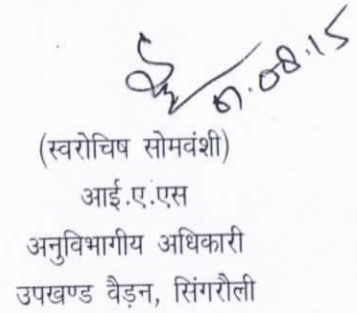 07.08.15
(स्वरोचिष सोमवंशी)
आई.ए.एस
अनुविभागीय अधिकारी
उपखण्ड वैड़न, सिंगरौली